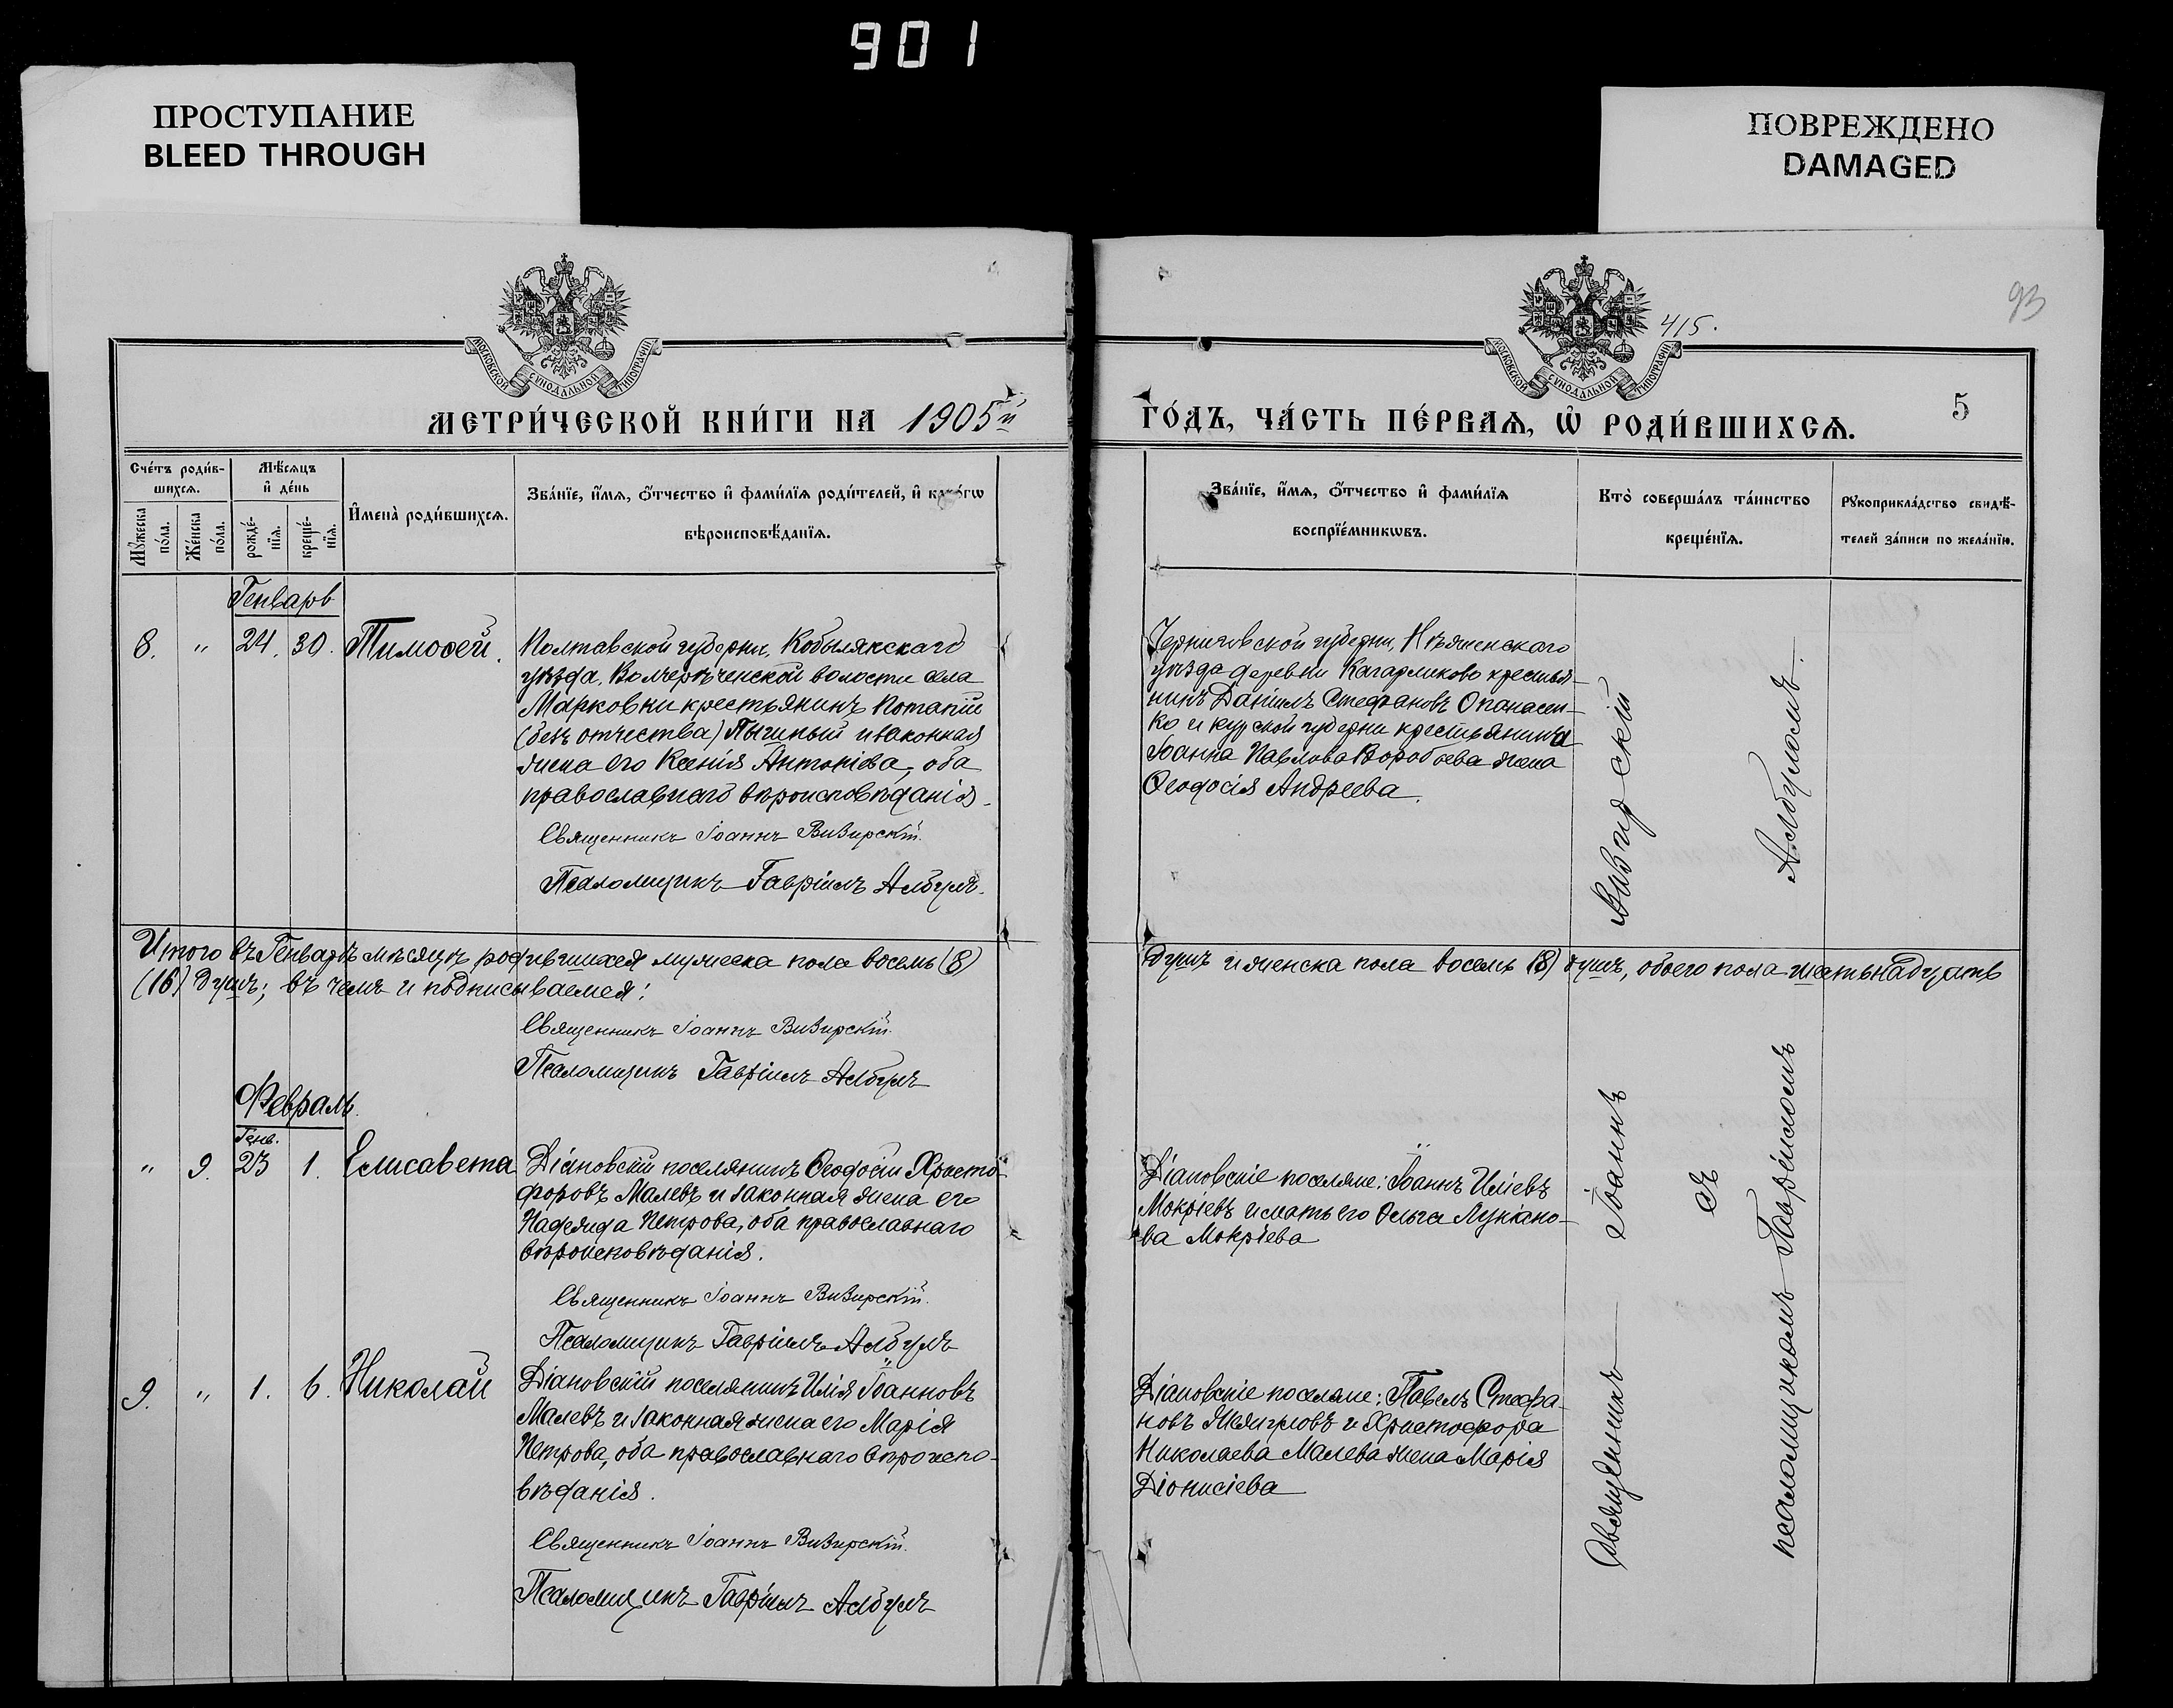 901
ПРОСТУПАНИЕ
BLEED THROUGH
ПОВРЕЖДЕНО
DAMAGED
93
415.
МОСКОВСКОЙ СѴНОДАЛЬНОЙ ТИПОГРАФІИ
МОСКОВСКОЙ СѴНОДАЛЬНОЙ ТИПОГРАФІИ
МЕТРИ́ЧЕСКОЙ КНИ́ГИ НА 1905й
ГО́ДЪ, ЧА́СТЬ ПЕ́РВАЯ, Ѡ҆ РОДИ́ВШИХСЯ.
5
Сче́тъ роди́в-
шихся.
Му́жеска
по́ла.
Же́нска
по́ла.
Мѣ́сяцъ
и҆ де́нь
рожде́-
нїя.
креще́-
нїя.
И҆мена̀ роди́вшихся.
Зва́нїе, и҆́мя, ѻ҆́тчество и҆ фами́лїя роди́телей, и҆ како́гѡ
вѣроисповѣ́данїя.
Зва́нїе, и҆́мя, ѻ҆́тчество и҆ фами́лїя
воспрїе́мникѡвъ.
Кто̀ соверша́лъ та́инство
креще́нїя.
Рукоприкла́дство свидѣ́-
телей за́писи по жела́нїю.
Генварь
8. " 24. 30. Тимофей.
Полтавской губерни, Кобылякскаго
уѣзда, Волчерѣченской волости села
Марковки крестьянинъ Потапій
(безъ отчества) и законная
жена его Ксенія Антоніева, оба
православнаго вѣроисповѣданія.
Священникъ Іоаннъ Визирскій.
Псаломщикъ Гавріилъ Албулъ.
Черниговской губерни, Нѣженскаго
уѣзда деревни Кагарликово крестья-
нинъ Даніилъ Стефановъ Опанасен-
ко и курской губерни крестьянина
Іоанна Павлова Воробьева жена
Ѳеодосія Андреева.
Итого въ Генварѣ мѣсяцѣ родившихся мужеска пола восемь (8)
душъ и женска пола восемь (8) душъ, обоего пола шестьнадцать
(16) душъ; въ чемъ и подписываемся:
Священникъ Іоаннъ Визирскій.
Псаломщикъ Гавріилъ Албулъ
Февраль.
Генв.
" 9. 23 1. Елисавета
Діановскій поселянинъ Ѳеодосій Христо-
форовъ Малевъ и законная жена его
Надежда Петрова, оба православнаго
вѣроисповѣданія.
Священникъ Іоаннъ Визирскій.
Псаломщикъ Гавріилъ Албулъ
Діановскіе поселяне: Іоаннъ Иліевъ
Мокріевъ и мать его Ольга Лукіано-
ва Мокріева
9. " 1. 6. Николай
Діановскій поселянинъ Илія Іоанновъ
Малевъ и законная жена его Марія
Петрова, оба православнаго вѣроиспо-
вѣданія.
Священникъ Іоаннъ Визирскій.
Псаломщикъ Гавріилъ Албулъ
Діановскіе поселяне: Павелъ Стефа-
новъ и Христофора
Николаева Малева жена Марія
Діонисіева
Священникъ Іоаннъ Визирскій
съ
псаломщикомъ Гавріиломъ Албуломъ.